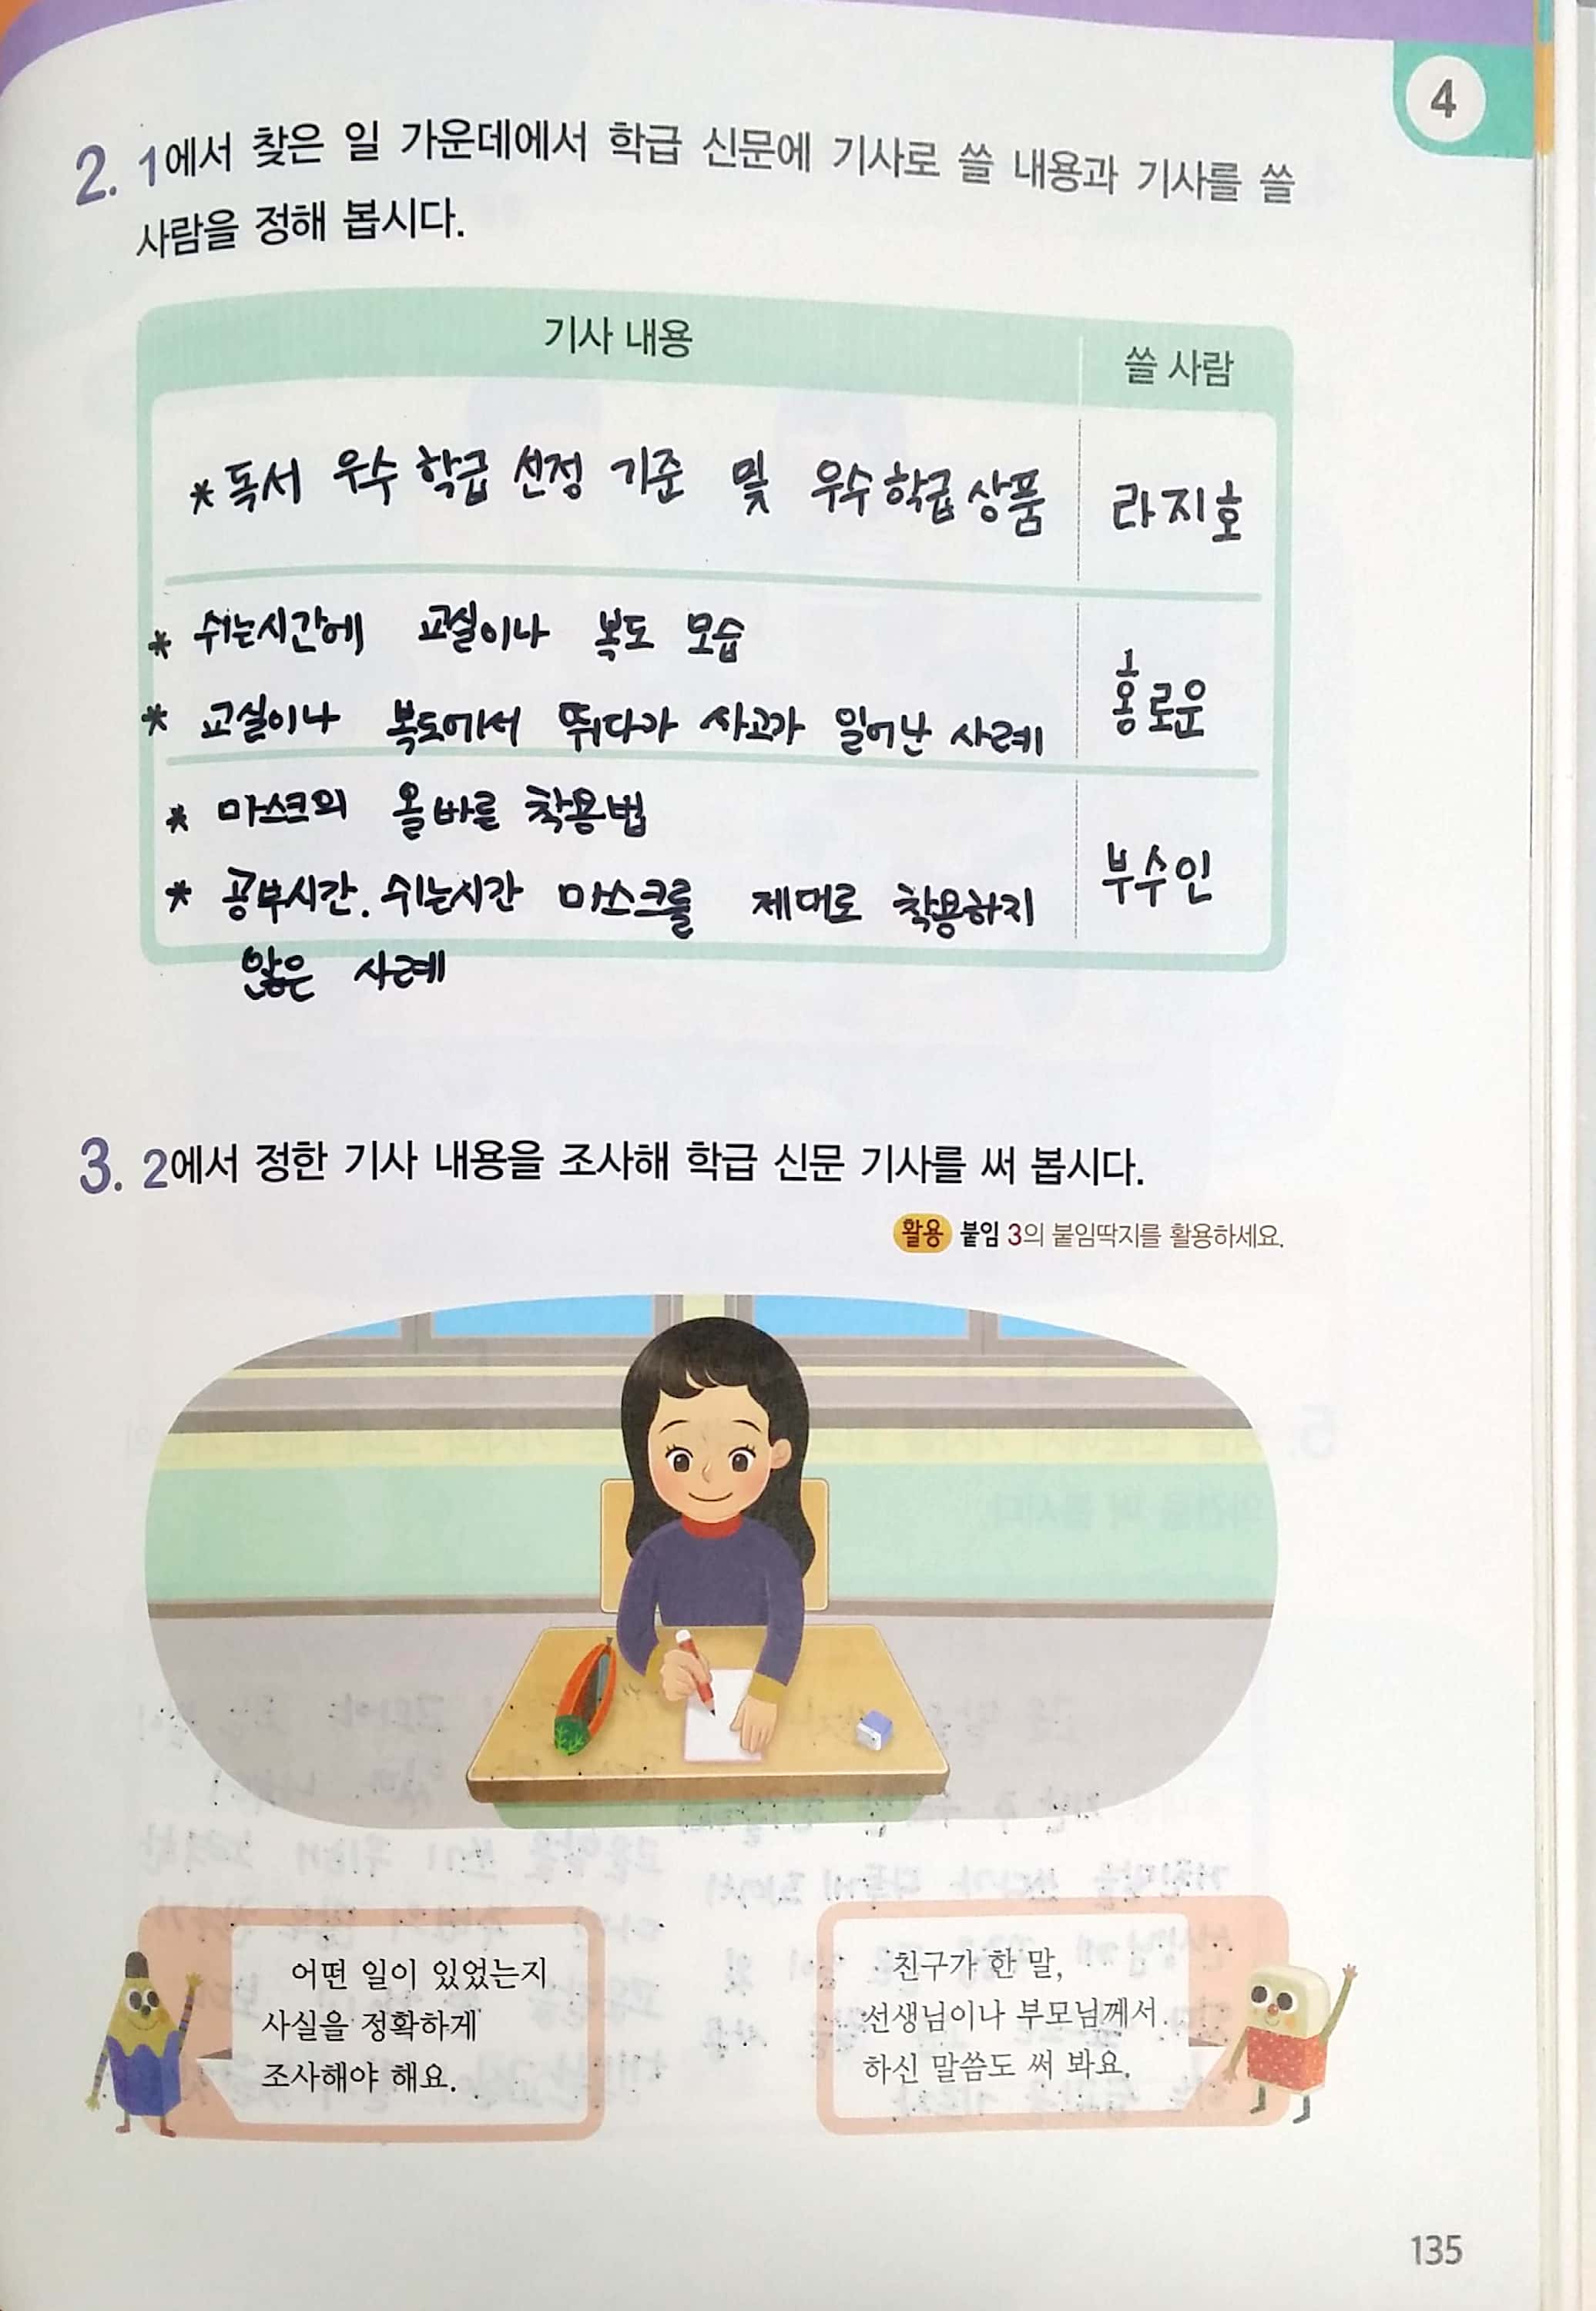 4
2. 1에서 찾은 일 가운데에서 학급 신문에 기사로 쓸 내용과 기사를 쓸
사람을 정해 봅시다.
기사 내용
쓸 사람
*독서 우수 학급 선정 기준 및 우수학급상품
라지호
* 쉬는시간에 교실이나 복도 모습
* 교실이나 복도에서 뛰다가 사고가 일어난 사례
홍로운
* 마스크의 올바를 착용법
* 공부시간. 쉬는시간 마스크를 제대로 착용하지
않은 사례
부수인
3. 2에서 정한 기사 내용을 조사해 학급 신문 기사를 써 봅시다.
활용 붙임 3의 붙임딱지를 활용하세요.
어떤 일이 있었는지
사실을 정확하게
조사해야 해요.
친구가 한 말,
선생님이나 부모님께서
하신 말씀도 써 봐요.
135